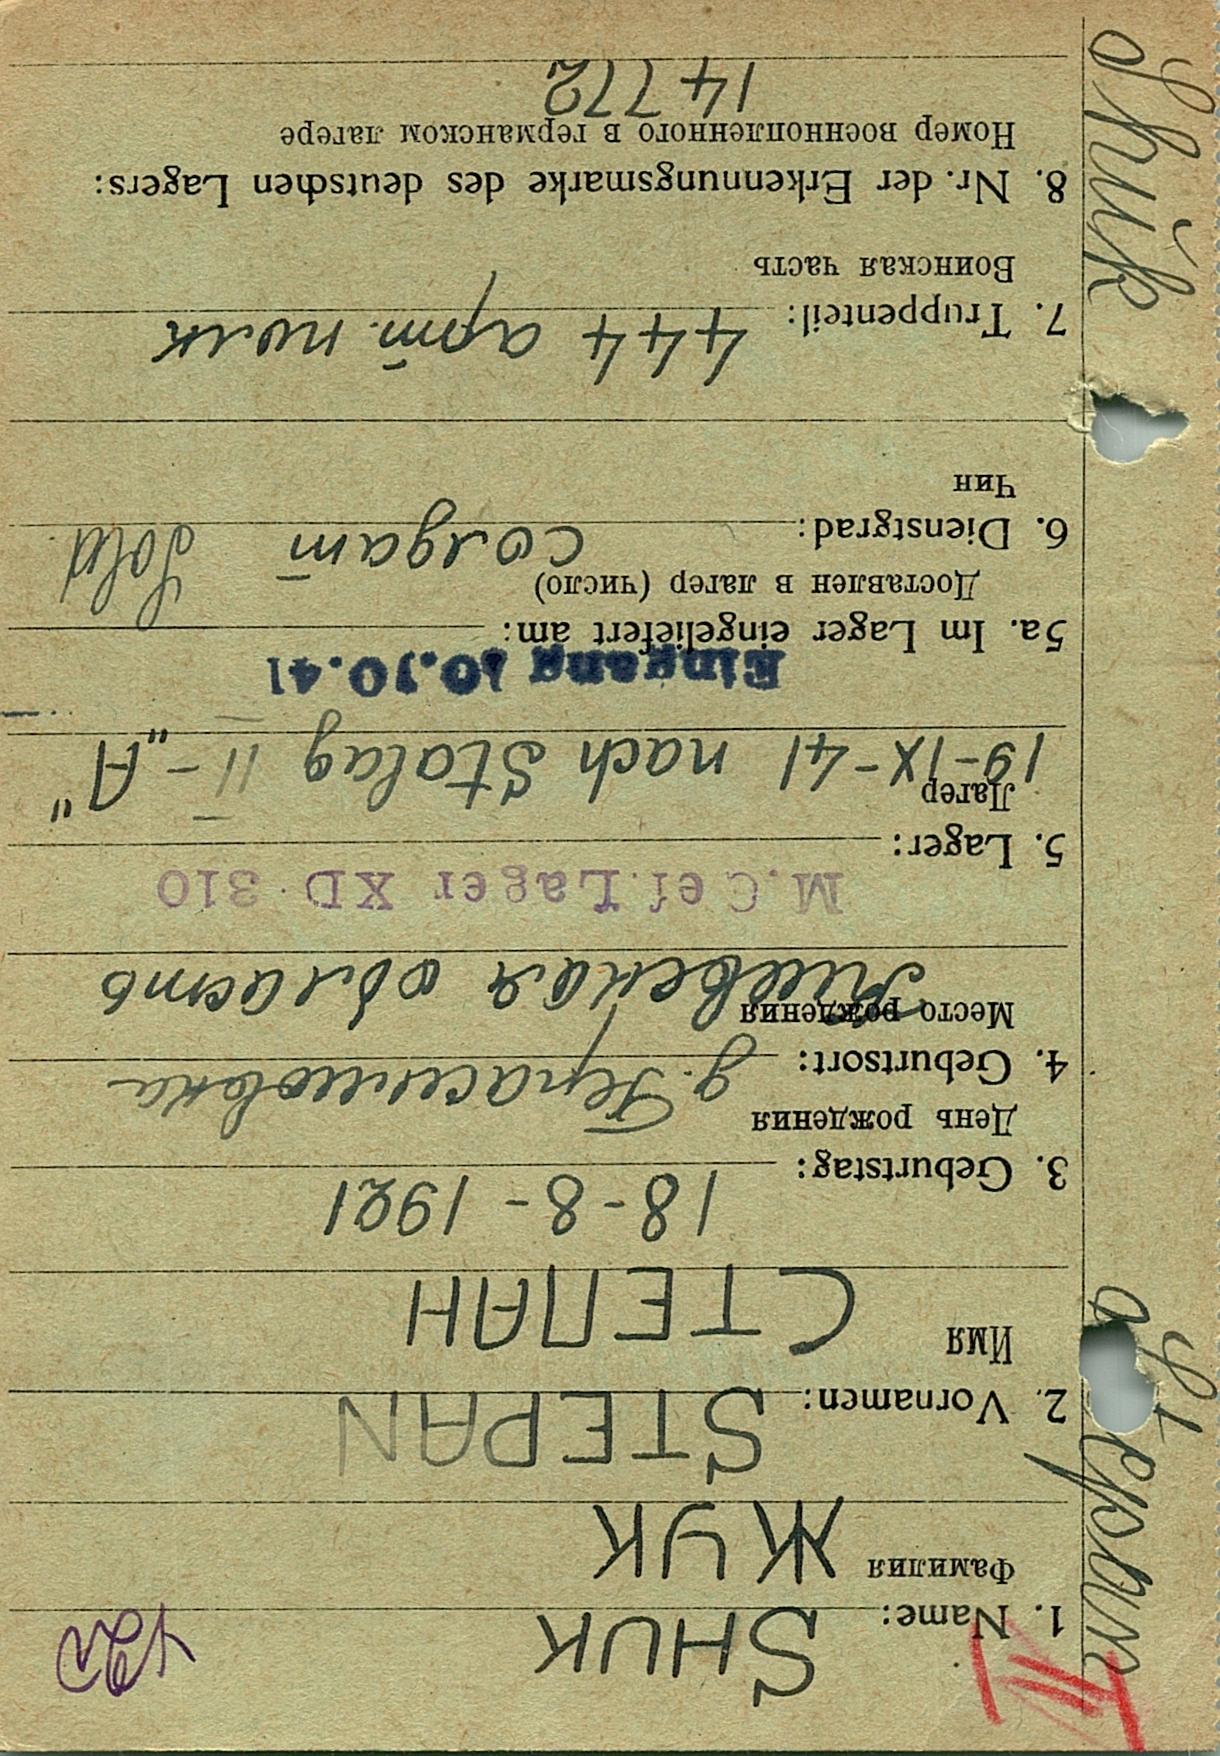 Shuk Stepan
1. Name: SHUK
Фамилия ЖУК
2. Vornamen: STEPAN
Имя СТЕПАН
18-8-1921
3. Geburtstag:
День рождения
д. Герасимовка
4. Geburtsort:
Место рождения
Киевская область
M.Gef.Lager XD 310
5. Lager:
Лагер
19-IX-41 nach Stalag II-„A"
Eingang 10.10.41
5a. Im Lager eingeliefert am:
Доставлен в лагер (число)
6. Dienstgrad: солдат Sold
Чин
7. Truppenteil: 444 арт. полк
Воинская часть
8. Nr. der Erkennungsmarke des deutschen Lagers:
Номер военнопленного в германском лагере
14772